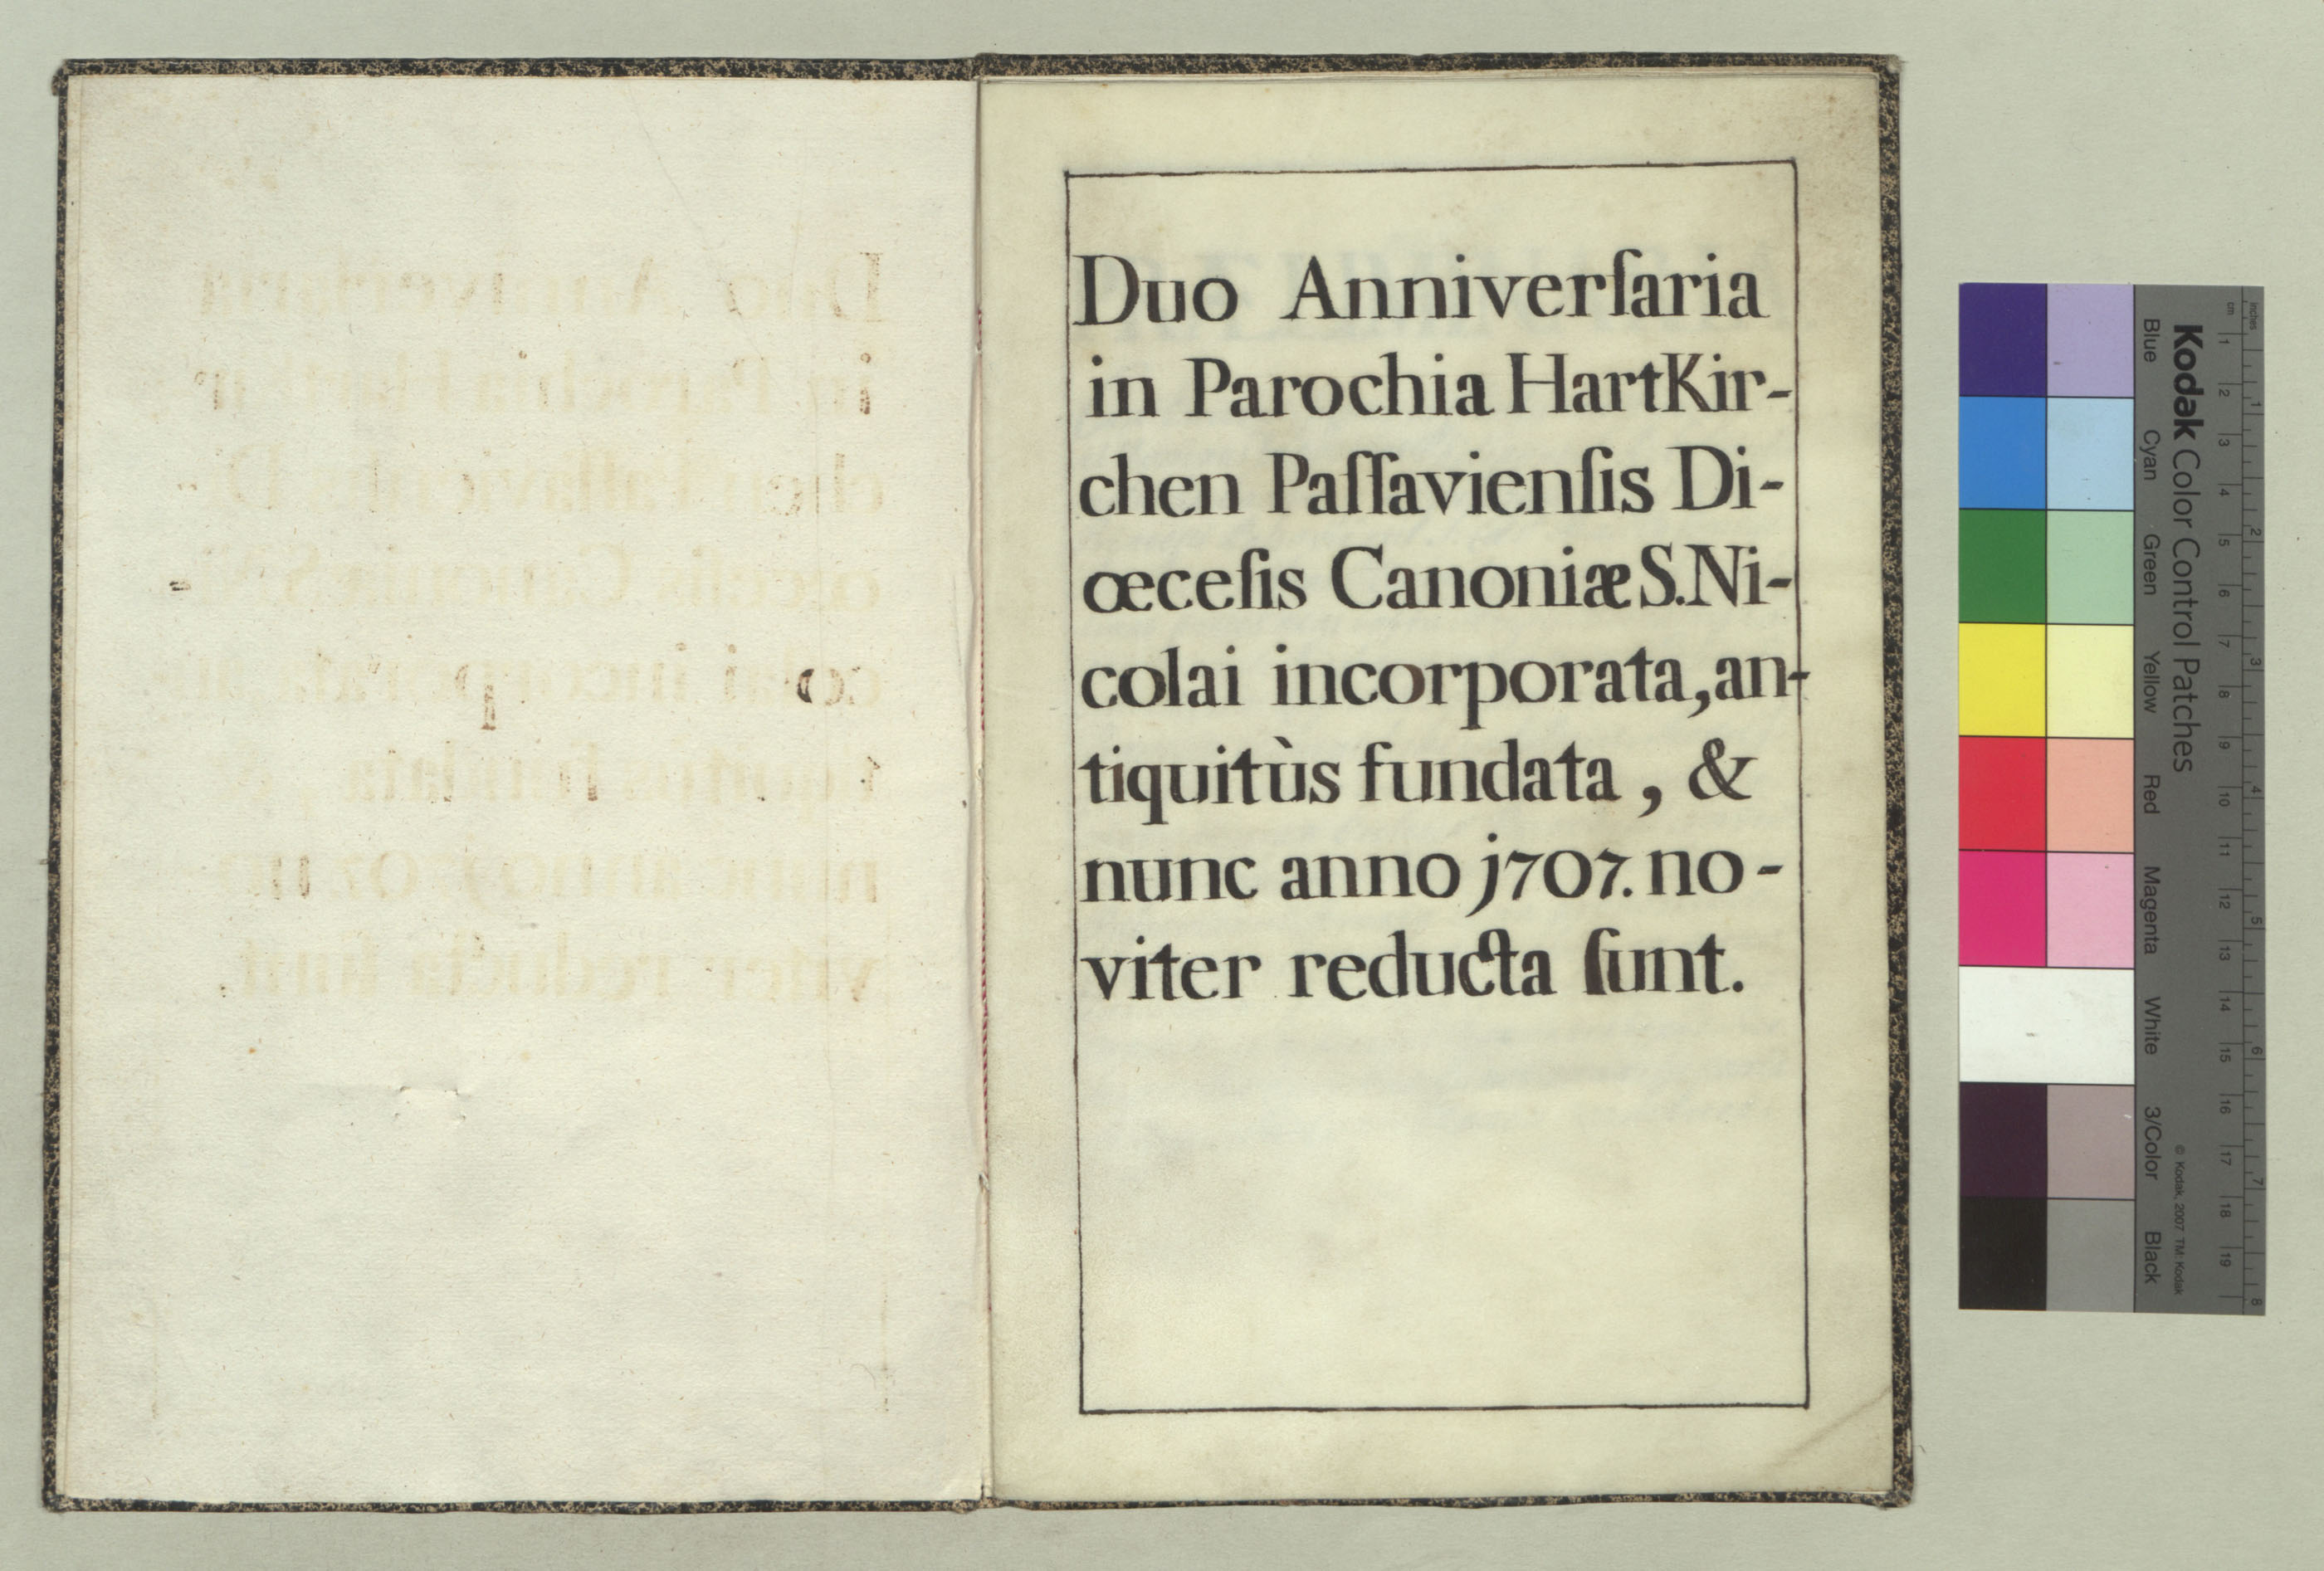 Duo Anniverſaria
in Parochia HartKir-
chen Paſſavienſis Di-
œceſis Canoniæ S. Ni-
colai incorporata, an-
tiquitùs fundata, &
nunc anno j707. no-
viter reducta ſunt.
Kodak Color Control Patches
Blue Cyan Green Yellow Red Magenta White 3/Color Black
© Kodak, 2007 TM: Kodak
cm 1 2 3 4 5 6 7 8 9 10 11 12 13 14 15 16 17 18 19
inches 1 2 3 4 5 6 7 8